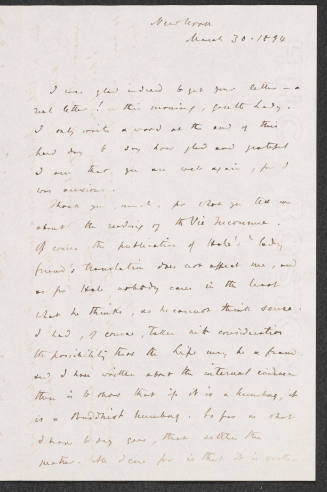 New York
March 30. 1894
I was glad indeed to get your letter – a
real letter! – this morning, gentle Lady.
I only write a word at the end of this
hard day to say how glad and grateful
I am that you are well again, for I
was anxious.
Thank you much for what you tell me
about the reading of the Vie Inconnue.
Of course the publication of Hale's "lady
friend's translation does not affect me, and
as for Hale nobody cares in the least
what he thinks, as he cannot think sense.
I had, of course, taken into consideration
the possibility that the life may be a fraud
and I have written about the internal evidence
there is to show that if it is a humbug, it
is a Buddhist humbug. So far as what
I have to say goes, that settles the
matter. All I care for is that it is